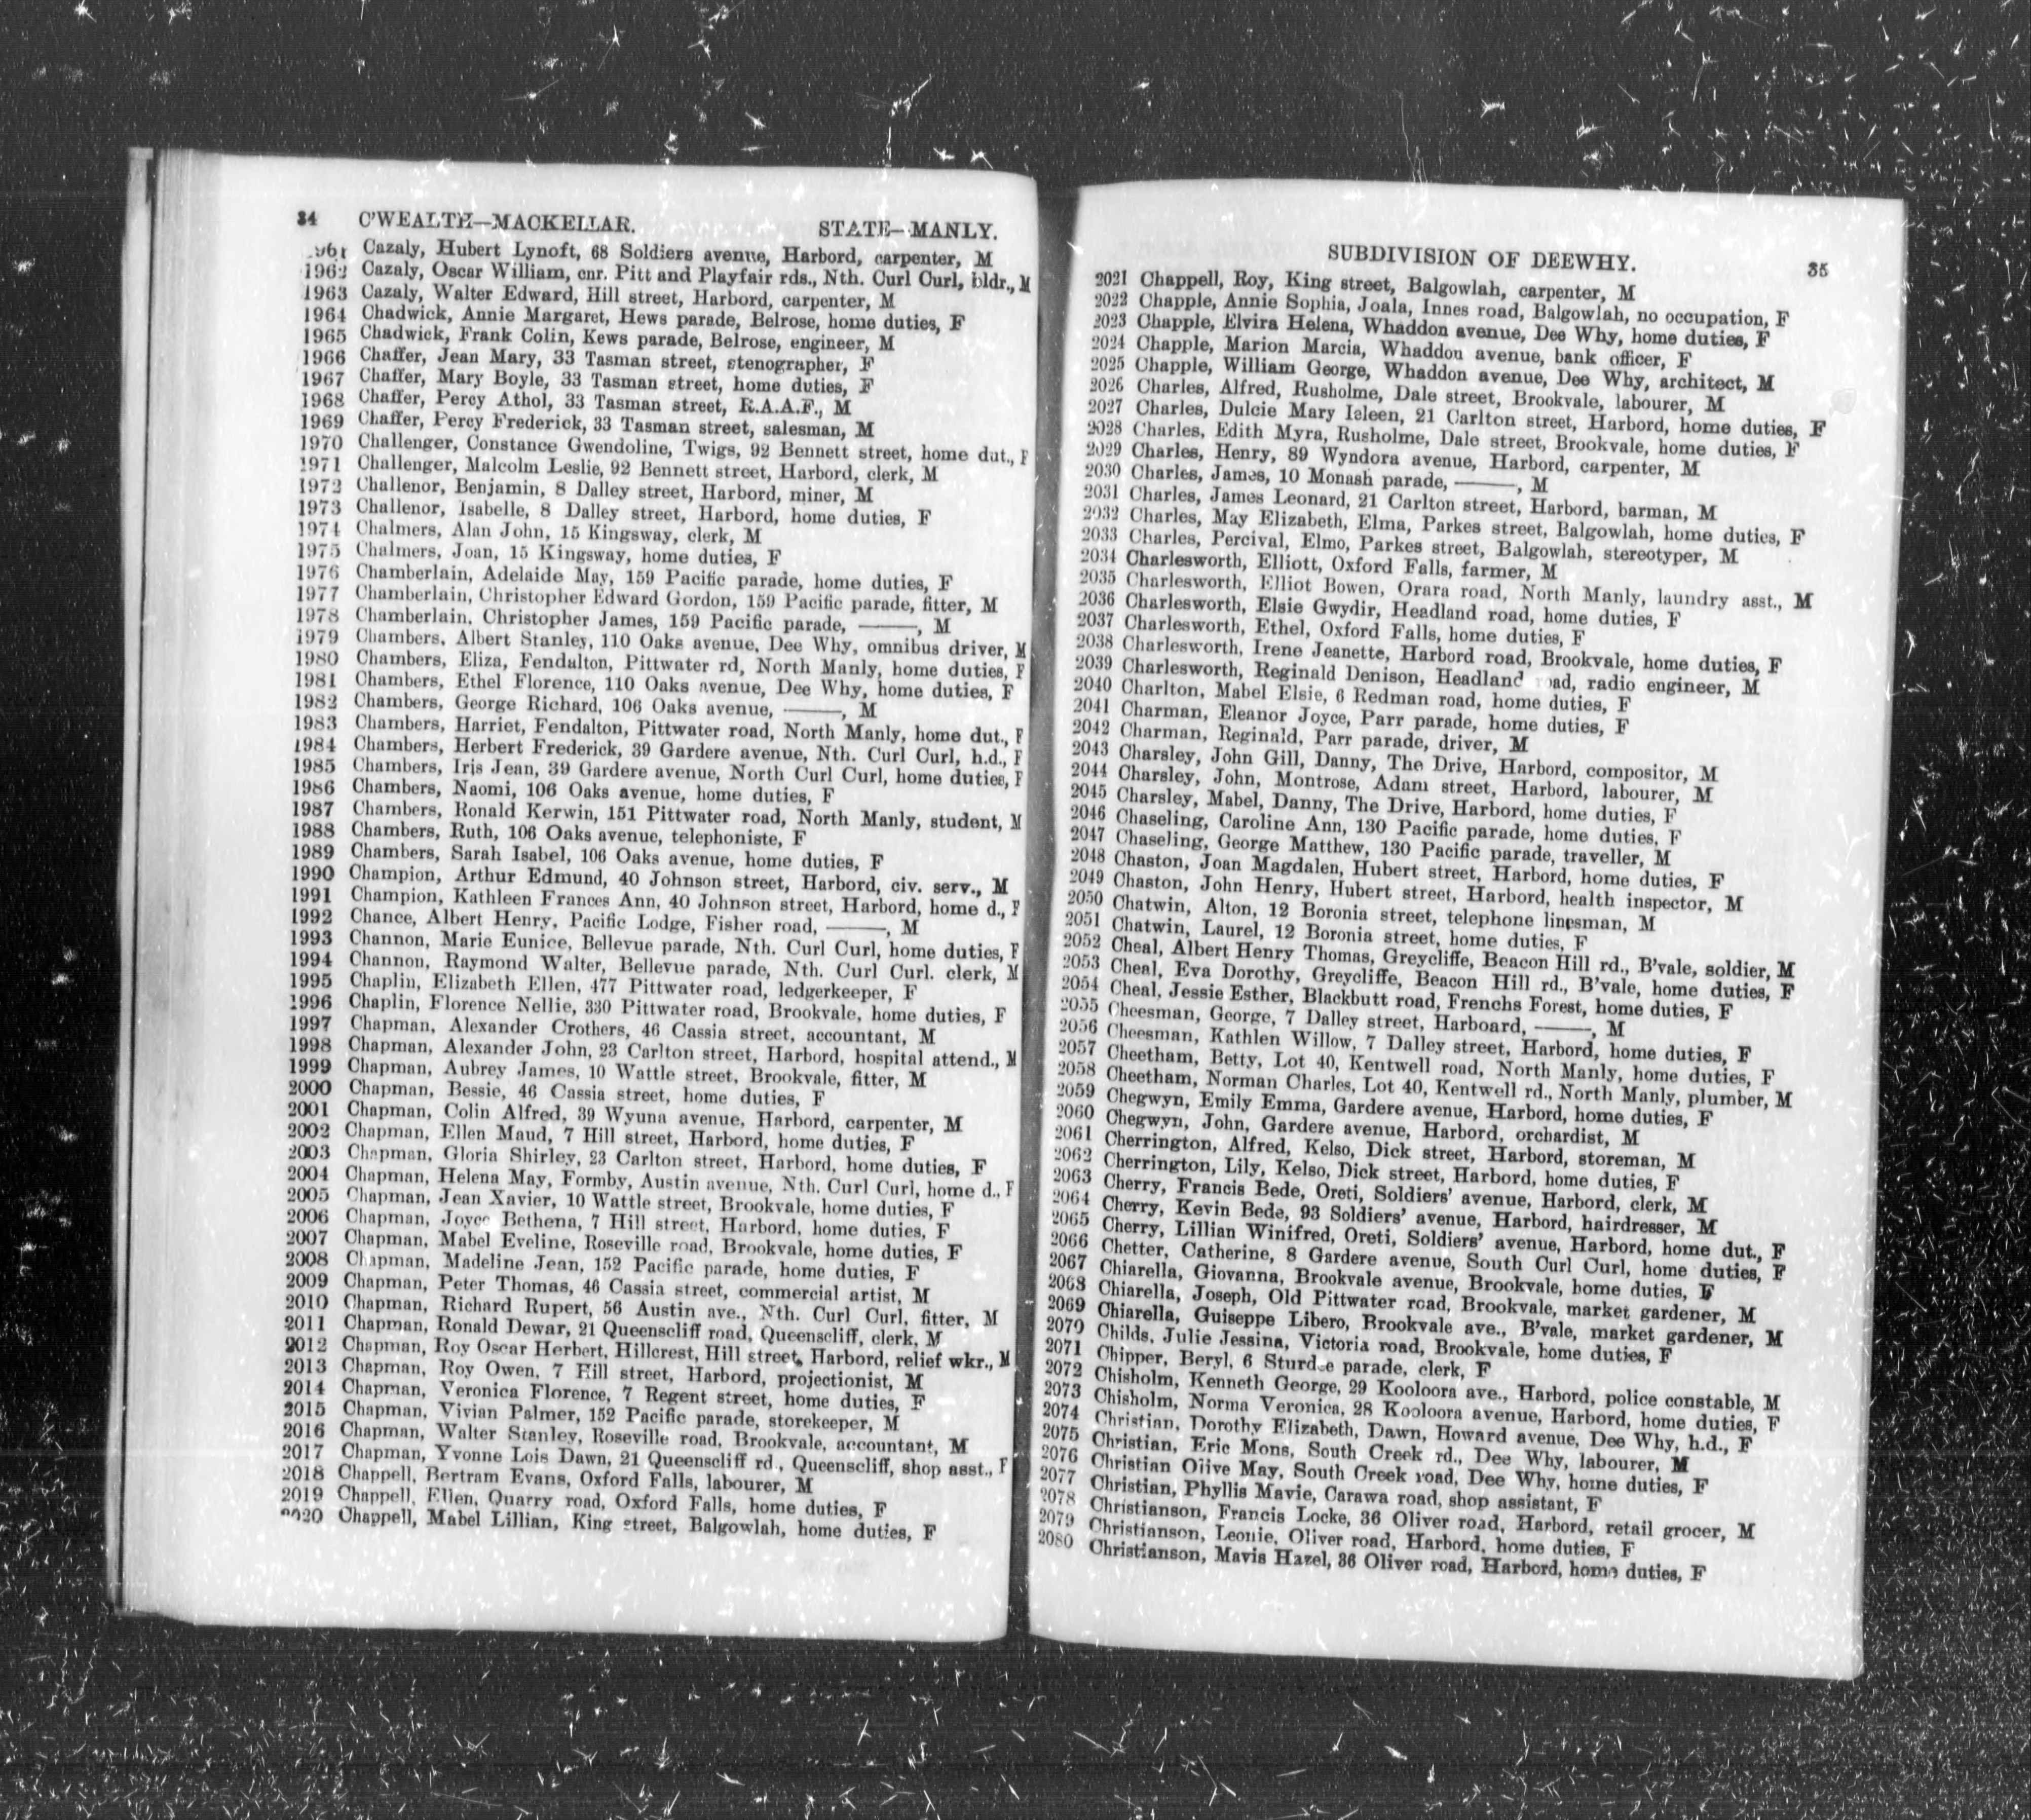 34 C'WEALTH—MACKELLAR. STATE—MANLY.
1961 Cazaly, Hubert Lynoft, 68 Soldiers avenue, Harbord, carpenter, M
1962 Cazaly, Oscar William, cnr. Pitt and Playfair rds., Nth. Curl Curl, bldr., M
1963 Cazaly, Walter Edward, Hill street, Harbord, carpenter, M
1964 Chadwick, Annie Margaret, Hews parade, Belrose, home duties, F
1965 Chadwick, Frank Colin, Kews parade, Belrose, engineer, M
1966 Chaffer, Jean Mary, 33 Tasman street, stenographer, F
1967 Chaffer, Mary Boyle, 33 Tasman street, home duties, F
1968 Chaffer, Percy Athol, 33 Tasman street, R.A.A.F., M
1969 Chaffer, Percy Frederick, 33 Tasman street, salesman, M
1970 Challenger, Constance Gwendoline, Twigs, 92 Bennett street, home dut., F
1971 Challenger, Malcolm Leslie, 92 Bennett street, Harbord, clerk, M
1972 Challenor, Benjamin, 8 Dalley street, Harbord, miner, M
1973 Challenor, Isabelle, 8 Dalley street, Harbord, home duties, F
1974 Chalmers, Alan John, 15 Kingsway, clerk, M
1975 Chalmers, Joan, 15 Kingsway, home duties, F
1976 Chamberlain, Adelaide May, 159 Pacific parade, home duties, F
1977 Chamberlain, Christopher Edward Gordon, 159 Pacific parade, fitter, M
1978 Chamberlain, Christopher James, 159 Pacific parade, ———, M
1979 Chambers, Albert Stanley, 110 Oaks avenue, Dee Why, omnibus driver, M
1980 Chambers, Eliza, Fendalton, Pittwater rd, North Manly, home duties, F
1981 Chambers, Ethel Florence, 110 Oaks avenue, Dee Why, home duties, F
1982 Chambers, George Richard, 106 Oaks avenue, ———, M
1983 Chambers, Harriet, Fendalton, Pittwater road, North Manly, home dut., F
1984 Chambers, Herbert Frederick, 39 Gardere avenue, Nth. Curl Curl, h.d., F
1985 Chambers, Iris Jean, 39 Gardere avenue, North Curl Curl, home duties, F
1986 Chambers, Naomi, 106 Oaks avenue, home duties, F
1987 Chambers, Ronald Kerwin, 151 Pittwater road, North Manly, student, M
1988 Chambers, Ruth, 106 Oaks avenue, telephoniste, F
1989 Chambers, Sarah Isabel, 106 Oaks avenue, home duties, F
1990 Champion, Arthur Edmund, 40 Johnson street, Harbord, civ. serv., M
1991 Champion, Kathleen Frances Ann, 40 Johnson street, Harbord, home d., F
1992 Chance, Albert Henry, Pacific Lodge, Fisher road, ———, M
1993 Channon, Marie Eunice, Bellevue parade, Nth. Curl Curl, home duties, F
1994 Channon, Raymond Walter, Bellevue parade, Nth. Curl Curl. clerk, M
1995 Chaplin, Elizabeth Ellen, 477 Pittwater road, ledgerkeeper, F
1996 Chaplin, Florence Nellie, 330 Pittwater road, Brookvale, home duties, F
1997 Chapman, Alexander Crothers, 46 Cassia street, accountant, M
1998 Chapman, Alexander John, 23 Carlton street, Harbord, hospital attend., M
1999 Chapman, Aubrey James, 10 Wattle street, Brookvale, fitter, M
2000 Chapman, Bessie, 46 Cassia street, home duties, F
2001 Chapman, Colin Alfred, 39 Wyuna avenue, Harbord, carpenter, M
2002 Chapman, Ellen Maud, 7 Hill street, Harbord, home duties, F
2003 Chapman, Gloria Shirley, 23 Carlton street, Harbord, home duties, F
2004 Chapman, Helena May, Formby, Austin avenue, Nth. Curl Curl, home d., F
2005 Chapman, Jean Xavier, 10 Wattle street, Brookvale, home duties, F
2006 Chapman, Joyce Bethena, 7 Hill street, Harbord, home duties, F
2007 Chapman, Mabel Eveline, Roseville road, Brookvale, home duties, F
2008 Chapman, Madeline Jean, 152 Pacific parade, home duties, F
2009 Chapman, Peter Thomas, 46 Cassia street, commercial artist, M
2010 Chapman, Richard Rupert, 56 Austin ave., Nth. Curl Curl, fitter, M
2011 Chapman, Ronald Dewar, 21 Queenscliff road, Queenscliff, clerk, M
2012 Chapman, Roy Oscar Herbert, Hillcrest, Hill street, Harbord, relief wkr., M
2013 Chapman, Roy Owen, 7 Hill street, Harbord, projectionist, M
2014 Chapman, Veronica Florence, 7 Regent street, home duties, F
2015 Chapman, Vivian Palmer, 152 Pacific parade, storekeeper, M
2016 Chapman, Walter Stanley, Roseville road, Brookvale, accountant, M
2017 Chapman, Yvonne Lois Dawn, 21 Queenscliff rd., Queenscliff, shop asst., F
2018 Chappell, Bertram Evans, Oxford Falls, labourer, M
2019 Chappell, Ellen, Quarry road, Oxford Falls, home duties, F
2020 Chappell, Mabel Lillian, King street, Balgowlah, home duties, F
SUBDIVISION OF DEEWHY. 35
2021 Chappell, Roy, King street, Balgowlah, carpenter, M
2022 Chapple, Annie Sophia, Joala, Innes road, Balgowlah, no occupation, F
2023 Chapple, Elvira Helena, Whaddon avenue, Dee Why, home duties, F
2024 Chapple, Marion Marcia, Whaddon avenue, bank officer, F
2025 Chapple, William George, Whaddon avenue, Dee Why, architect, M
2026 Charles, Alfred, Rusholme, Dale street, Brookvale, labourer, M
2027 Charles, Dulcie Mary Isleen, 21 Carlton street, Harbord, home duties, F
2028 Charles, Edith Myra, Rusholme, Dale street, Brookvale, home duties, F
2029 Charles, Henry, 89 Wyndora avenue, Harbord, carpenter, M
2030 Charles, James, 10 Monash parade, ———, M
2031 Charles, James Leonard, 21 Carlton street, Harbord, barman, M
2032 Charles, May Elizabeth, Elma, Parkes street, Balgowlah, home duties, F
2033 Charles, Percival, Elmo, Parkes street, Balgowlah, stereotyper, M
2034 Charlesworth, Elliott, Oxford Falls, farmer, M
2035 Charlesworth, Elliot Bowen, Orara road, North Manly, laundry asst., M
2036 Charlesworth, Elsie Gwydir, Headland road, home duties, F
2037 Charlesworth, Ethel, Oxford Falls, home duties, F
2038 Charlesworth, Irene Jeanette, Harbord road, Brookvale, home duties, F
2039 Charlesworth, Reginald Denison, Headland road, radio engineer, M
2040 Charlton, Mabel Elsie, 6 Redman road, home duties, F
2041 Charman, Eleanor Joyce, Parr parade, home duties, F
2042 Charman, Reginald, Parr parade, driver, M
2043 Charsley, John Gill, Danny, The Drive, Harbord, compositor, M
2044 Charsley, John, Montrose, Adam street, Harbord, labourer, M
2045 Charsley, Mabel, Danny, The Drive, Harbord, home duties, F
2046 Chaseling, Caroline Ann, 130 Pacific parade, home duties, F
2047 Chaseling, George Matthew, 130 Pacific parade, traveller, M
2048 Chaston, Joan Magdalen, Hubert street, Harbord, home duties, F
2049 Chaston, John Henry, Hubert street, Harbord, health inspector, M
2050 Chatwin, Alton, 12 Boronia street, telephone linesman, M
2051 Chatwin, Laurel, 12 Boronia street, home duties, F
2052 Cheal, Albert Henry Thomas, Greycliffe, Beacon Hill rd., B'vale, soldier, M
2053 Cheal, Eva Dorothy, Greycliffe, Beacon Hill rd., B'vale, home duties, F
2054 Cheal, Jessie Esther, Blackbutt road, Frenchs Forest, home duties, F
2055 Cheesman, George, 7 Dalley street, Harboard, ———, M
2056 Cheesman, Kathlen Willow, 7 Dalley street, Harbord, home duties, F
2057 Cheetham, Betty, Lot 40, Kentwell road, North Manly, home duties, F
2058 Cheetham, Norman Charles, Lot 40, Kentwell rd., North Manly, plumber, M
2059 Chegwyn, Emily Emma, Gardere avenue, Harbord, home duties, F
2060 Chegwyn, John, Gardere avenue, Harbord, orchardist, M
2061 Cherrington, Alfred, Kelso, Dick street, Harbord, storeman, M
2062 Cherrington, Lily, Kelso, Dick street, Harbord, home duties, F
2063 Cherry, Francis Bede, Oreti, Soldiers' avenue, Harbord, clerk, M
2064 Cherry, Kevin Bede, 93 Soldiers' avenue, Harbord, hairdresser, M
2065 Cherry, Lillian Winifred, Oreti, Soldiers' avenue, Harbord, home dut., F
2066 Chetter, Catherine, 8 Gardere avenue, South Curl Curl, home duties, F
2067 Chiarella, Giovanna, Brookvale avenue, Brookvale, home duties, F
2068 Chiarella, Joseph, Old Pittwater road, Brookvale, market gardener, M
2069 Chiarella, Guiseppe Libero, Brookvale ave., B'vale, market gardener, M
2070 Childs, Julie Jessina, Victoria road, Brookvale, home duties, F
2071 Chipper, Beryl, 6 Sturdee parade, clerk, F
2072 Chisholm, Kenneth George, 29 Kooloora ave., Harbord, police constable, M
2073 Chisholm, Norma Veronica, 28 Kooloora avenue, Harbord, home duties, F
2074 Christian, Dorothy Elizabeth, Dawn, Howard avenue, Dee Why, h.d., F
2075 Christian, Eric Mons, South Creek rd., Dee Why, labourer, M
2076 Christian Olive May, South Creek road, Dee Why, home duties, F
2077 Christian, Phyllis Mavie, Carawa road, shop assistant, F
2078 Christianson, Francis Locke, 36 Oliver road, Harbord, retail grocer, M
2079 Christianson, Leonie, Oliver road, Harbord, home duties, F
2080 Christianson, Mavis Hazel, 36 Oliver road, Harbord, home duties, F